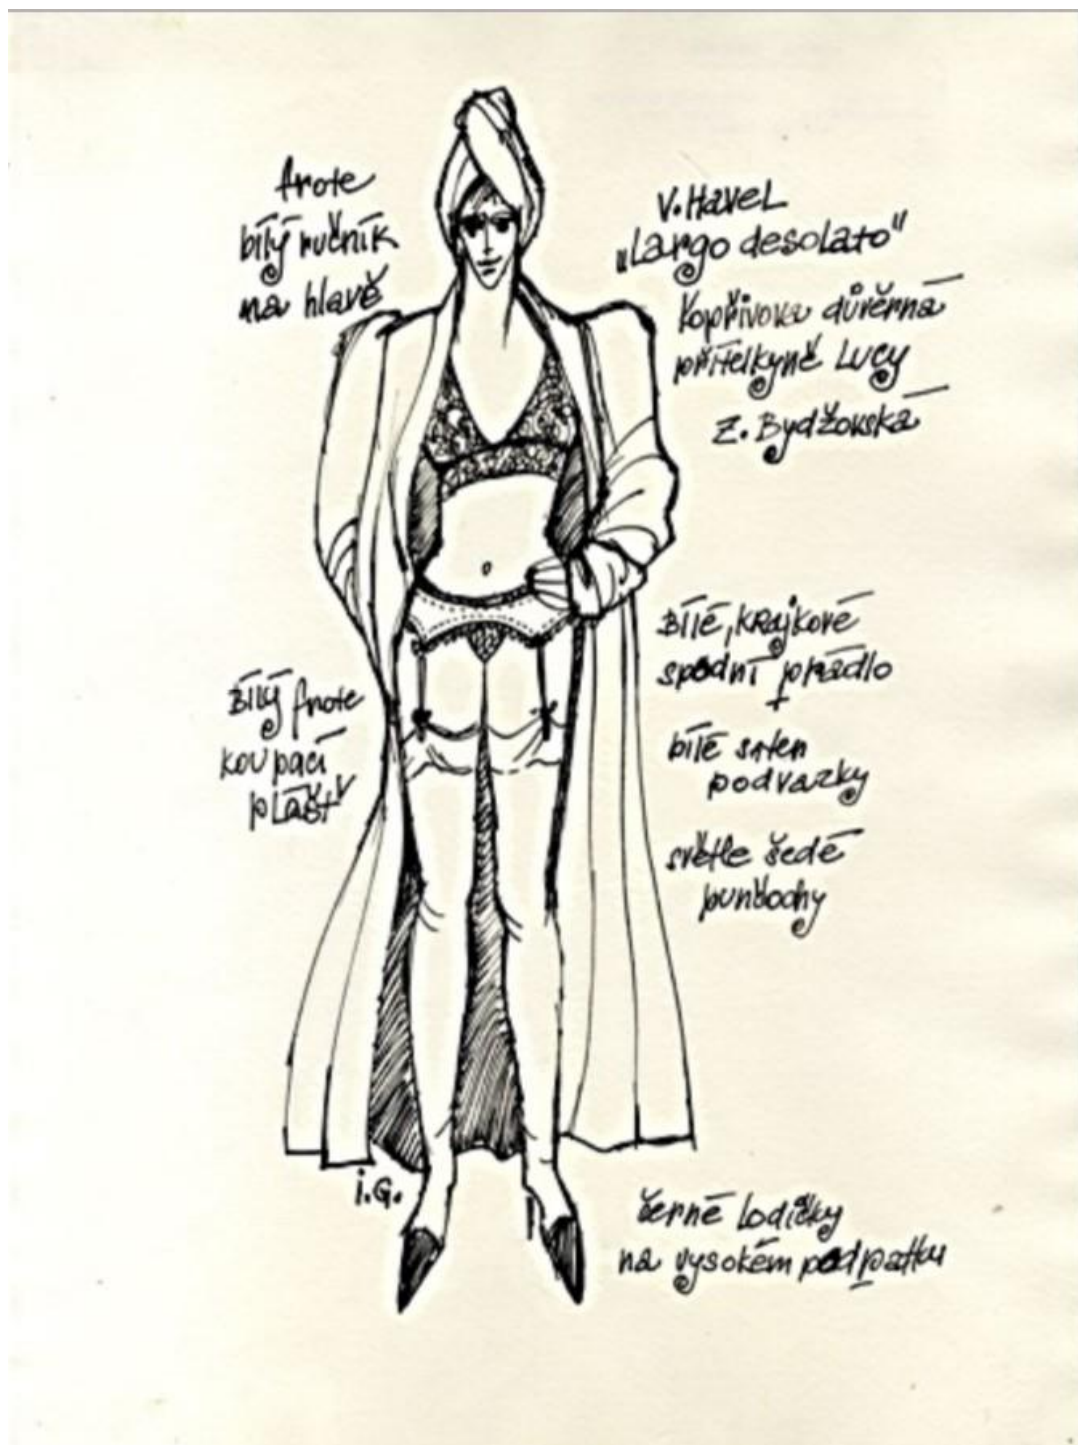 frote
bílý ručník
na hlavě
V. Havel
„Largo desolato"
Kopřivova důvěrná
přítelkyně Lucy
Z. Bydžovská
Bílé, krajkové
spodní prádlo
+
bílé saten
podvazky
světle šedé
punčochy
Bílý frote
koupací
plášť
i.G.
černé lodičky
na vysokém podpatku